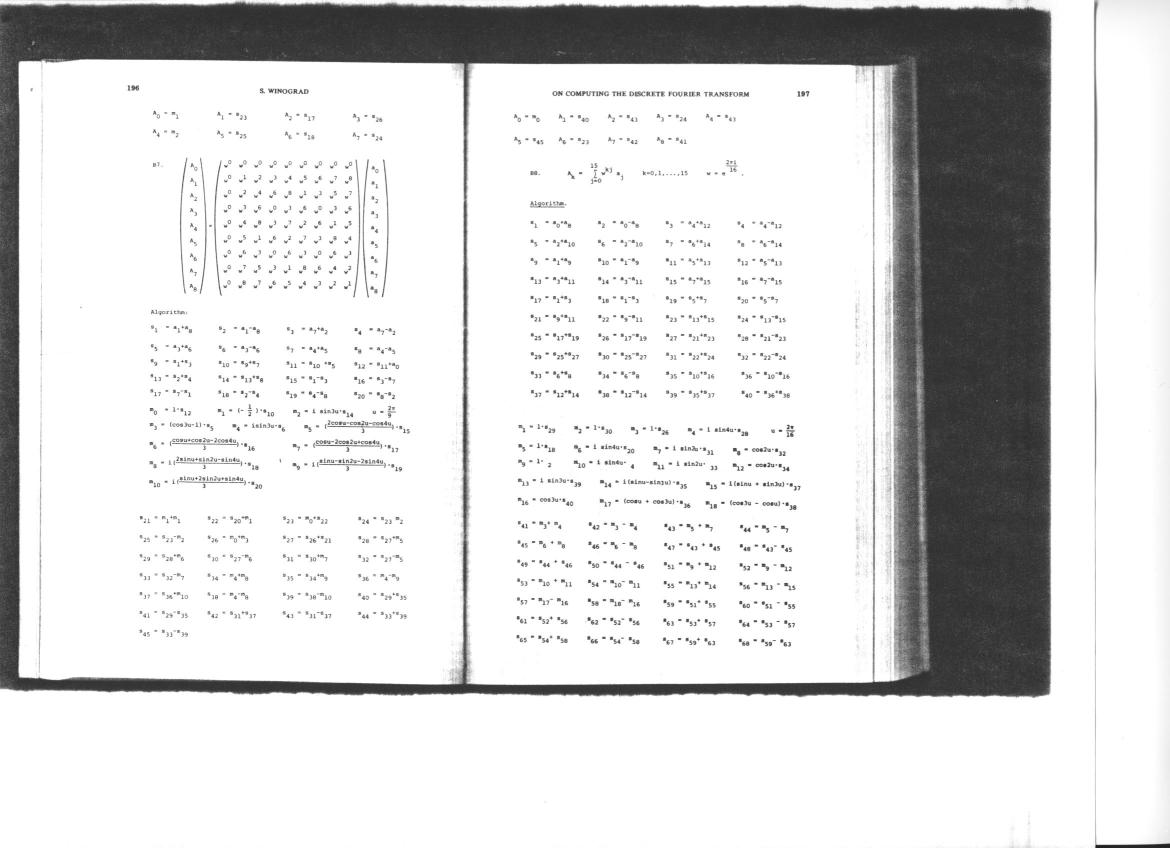 196
S. WINOGRAD
A0 = m1 A1 = s23 A2 = s17 A3 = s26
A4 = m2 A5 = s25 A6 = s18 A7 = s24
B7.
A0 w0 w0 w0 w0 w0 w0 w0 w0 w0 a0
A1 w0 w1 w2 w3 w4 w5 w6 w7 w8 a1
A2 w0 w2 w4 w6 w8 w1 w3 w5 w7 a2
A3 w0 w3 w6 w0 w3 w6 w0 w3 w6 a3
A4 = w0 w4 w8 w3 w7 w2 w6 w1 w5 a4
A5 w0 w5 w1 w6 w2 w7 w3 w8 w4 a5
A6 w0 w6 w3 w0 w6 w3 w0 w6 w3 a6
A7 w0 w7 w5 w3 w1 w8 w6 w4 w2 a7
A8 w0 w8 w7 w6 w5 w4 w3 w2 w1 a8
Algorithm:
s1 = a1+a8 s2 = a1-a8 s3 = a7+a2 s4 = a7-a2
s5 = a3+a6 s6 = a3-a6 s7 = a4+a5 s8 = a4-a5
s9 = s1+s3 s10 = s9+s7 s11 = s10+s5 s12 = s11+a0
s13 = s2+s4 s14 = s13+s8 s15 = s1-s3 s16 = s3-s7
s17 = s7-s1 s18 = s2-s4 s19 = s4-s8 s20 = s8-s2
m0 = 1·s12 m1 = (-1/2)·s10 m2 = i sin3u·s14 u = 2π/9
m3 = (cos3u-1)·s5 m4 = isin3u·s6 m5 = (2cosu-cos2u-cos4u/3)·s15
m6 = (cosu+cos2u-2cos4u/3)·s16 m7 = (cosu-2cos2u+cos4u/3)·s17
m8 = i(2sinu+sin2u-sin4u/3)·s18 m9 = i(sinu-sin2u-2sin4u/3)·s19
m10 = i(sinu+2sin2u+sin4u/3)·s20
s21 = m1+m1 s22 = s20+m1 s23 = m0+s22 s24 = s23 m2
s25 = s23-m2 s26 = m0+m3 s27 = s26+s21 s28 = s27+m5
s29 = s28+m6 s30 = s27-m6 s31 = s30+m7 s32 = s27-m5
s33 = s32-m7 s34 = m4+m8 s35 = s34+m9 s36 = m4-m9
s37 = s36+m10 s38 = m4-m8 s39 = s38-m10 s40 = s29+s35
s41 = s29-s35 s42 = s31+s37 s43 = s31-s37 s44 = s33+s39
s45 = s33-s39
ON COMPUTING THE DISCRETE FOURIER TRANSFORM
197
A0 = m0 A1 = s40 A2 = s43 A3 = s24 A4 = s43
A5 = s45 A6 = s23 A7 = s42 A8 = s41
B8. Ak = Σ j=0 15 wkj aj k=0,1,...,15 w = e 2πi/16 .
Algorithm.
s1 = a0+a8 s2 = a0-a8 s3 = a4+a12 s4 = a4-a12
s5 = a2+a10 s6 = a2-a10 s7 = a6+a14 s8 = a6-a14
s9 = a1+a9 s10 = a1-a9 s11 = a5+a13 s12 = a5-a13
s13 = a3+a11 s14 = a3-a11 s15 = a7+a15 s16 = a7-a15
s17 = s1+s3 s18 = s1-s3 s19 = s5+s7 s20 = s5-s7
s21 = s9+s11 s22 = s9-s11 s23 = s13+s15 s24 = s13-s15
s25 = s17+s19 s26 = s17-s19 s27 = s21+s23 s28 = s21-s23
s29 = s25+s27 s30 = s25-s27 s31 = s22+s24 s32 = s22-s24
s33 = s6+s8 s34 = s6-s8 s35 = s10+s16 s36 = s10-s16
s37 = s12+s14 s38 = s12-s14 s39 = s35+s37 s40 = s36+s38
m1 = 1·s29 m2 = 1·s30 m3 = 1·s26 m4 = i sin4u·s28 u = 2π/16
m5 = 1·s18 m6 = i sin4u·s20 m7 = i sin2u·s31 m8 = cos2u·s32
m9 = 1· 2 m10 = i sin4u· 4 m11 = i sin2u· 33 m12 = cos2u·s34
m13 = i sin3u·s39 m14 = i(sinu-sin3u)·s35 m15 = i(sinu + sin3u)·s37
m16 = cos3u·s40 m17 = (cosu + cos3u)·s36 m18 = (cos3u - cosu)·s38
s41 = m3+ m4 s42 = m3 - m4 s43 = m5 + m7 s44 = m5 - m7
s45 = m6 + m8 s46 = m6 - m8 s47 = s43 + s45 s48 = s43- s45
s49 = s44 + s46 s50 = s44 - s46 s51 = m9 + m12 s52 = m9 - m12
s53 = m10 + m11 s54 = m10- m11 s55 = m13+ m14 s56 = m13 - m15
s57 = m17- m16 s58 = m18- m16 s59 = s51+ s55 s60 = s51 - s55
s61 = s52+ s56 s62 = s52- s56 s63 = s53+ s57 s64 = s53 - s57
s65 = s54+ s58 s66 = s54- s58 s67 = s59+ s63 s68 = s59- s63